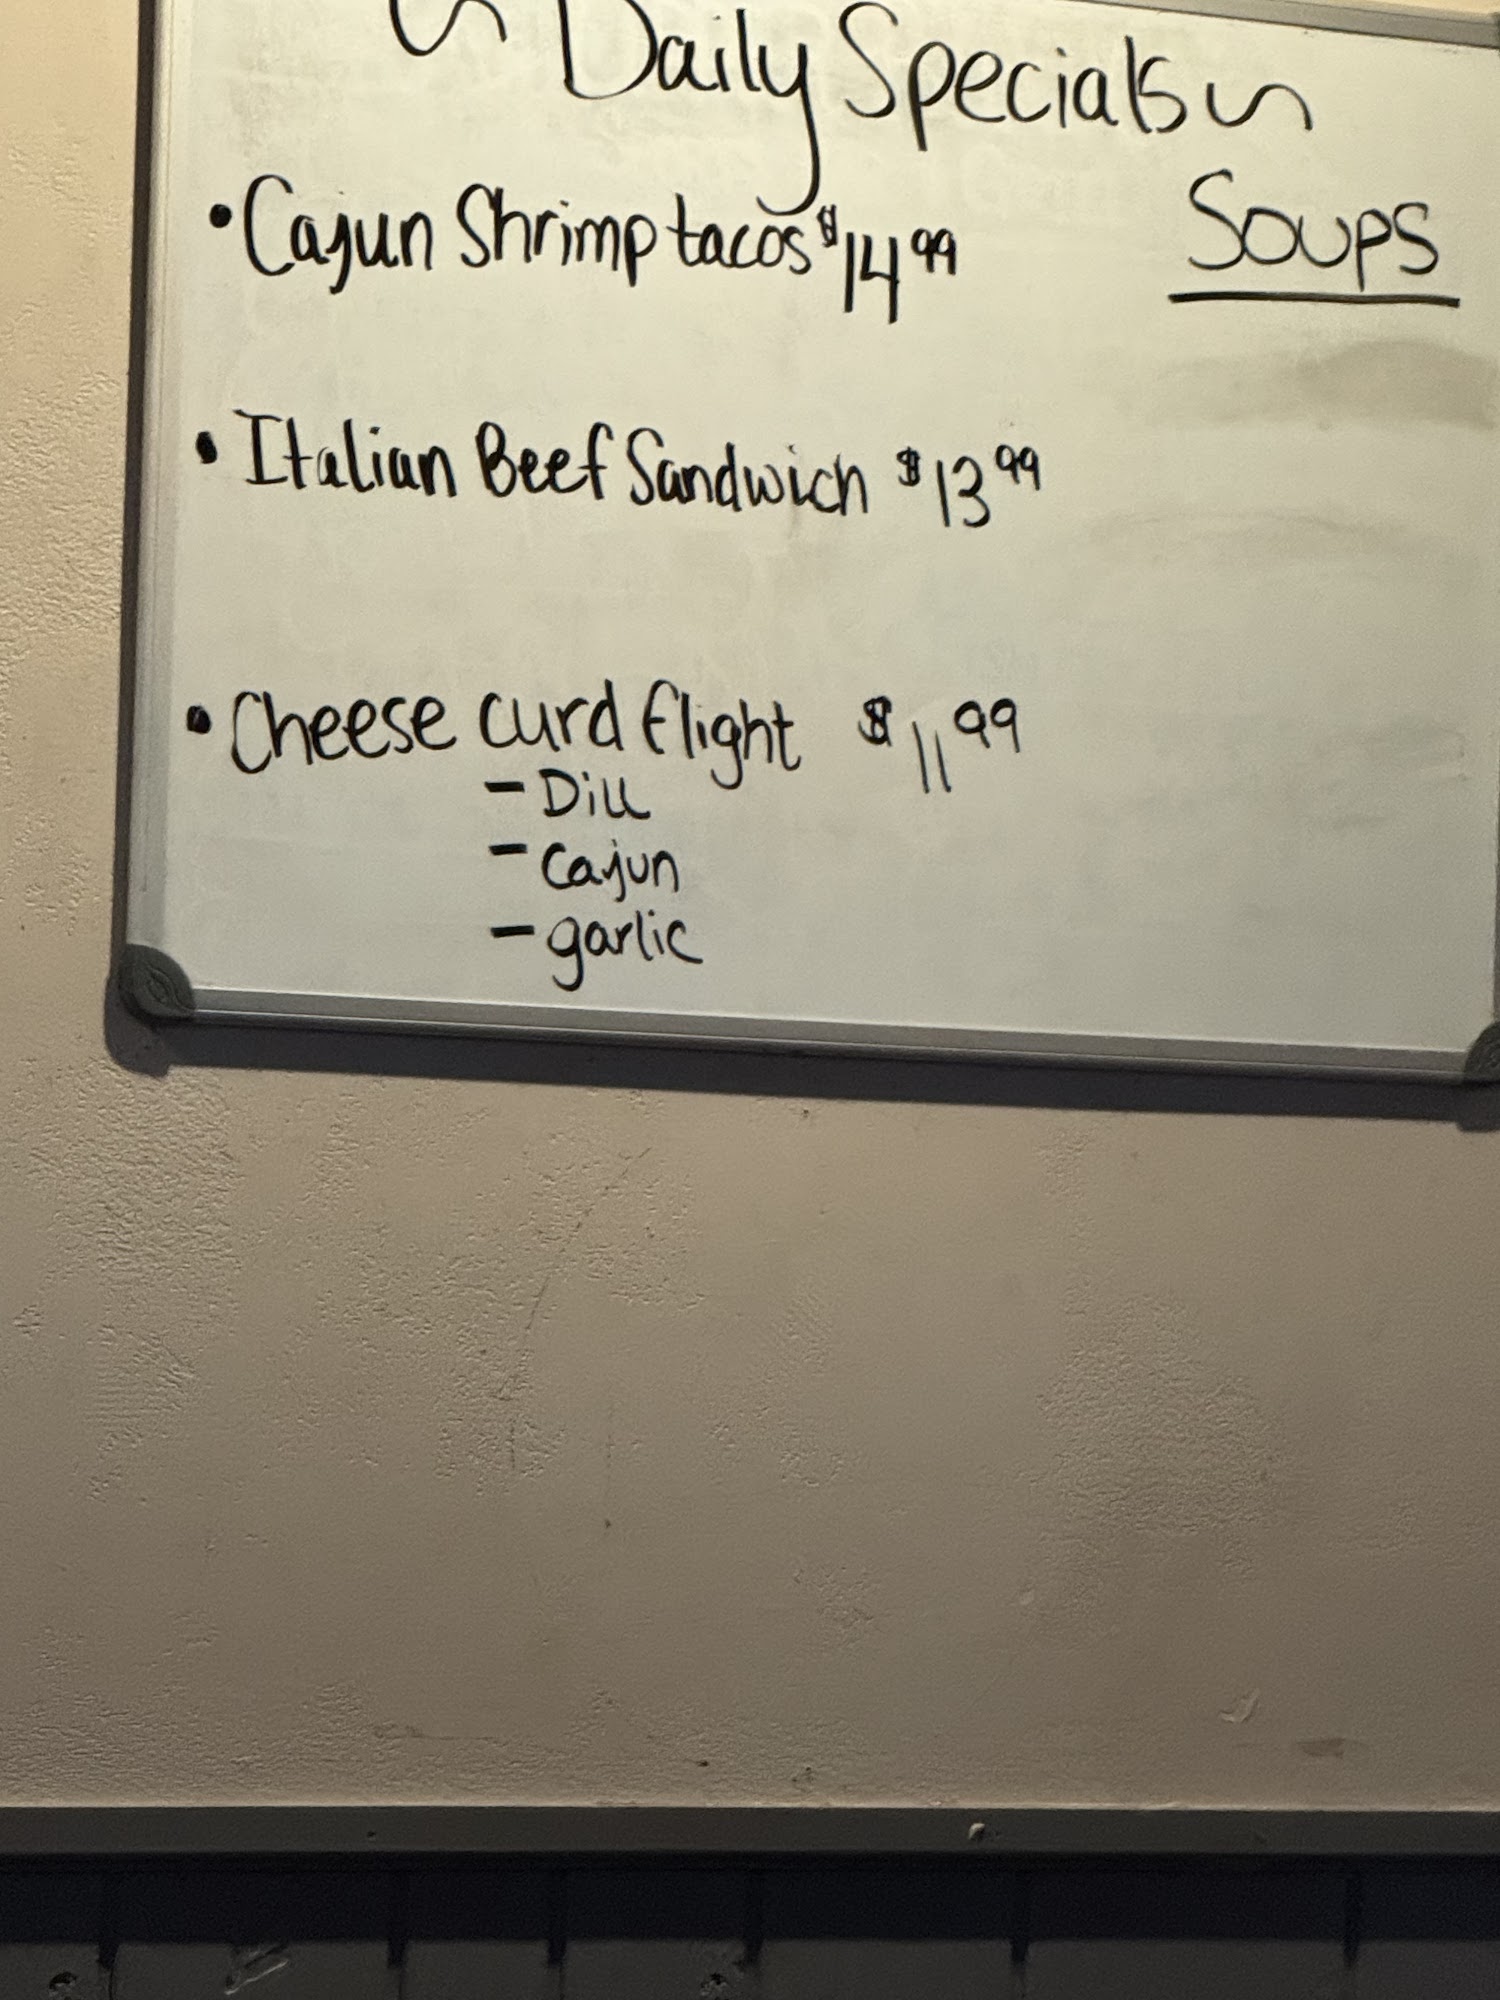 ~ Daily Specials ~
• Cajun Shrimp tacos $14.99
Soups
• Italian Beef Sandwich $13.99
• Cheese curd flight $11.99
- Dill
- Cajun
- garlic